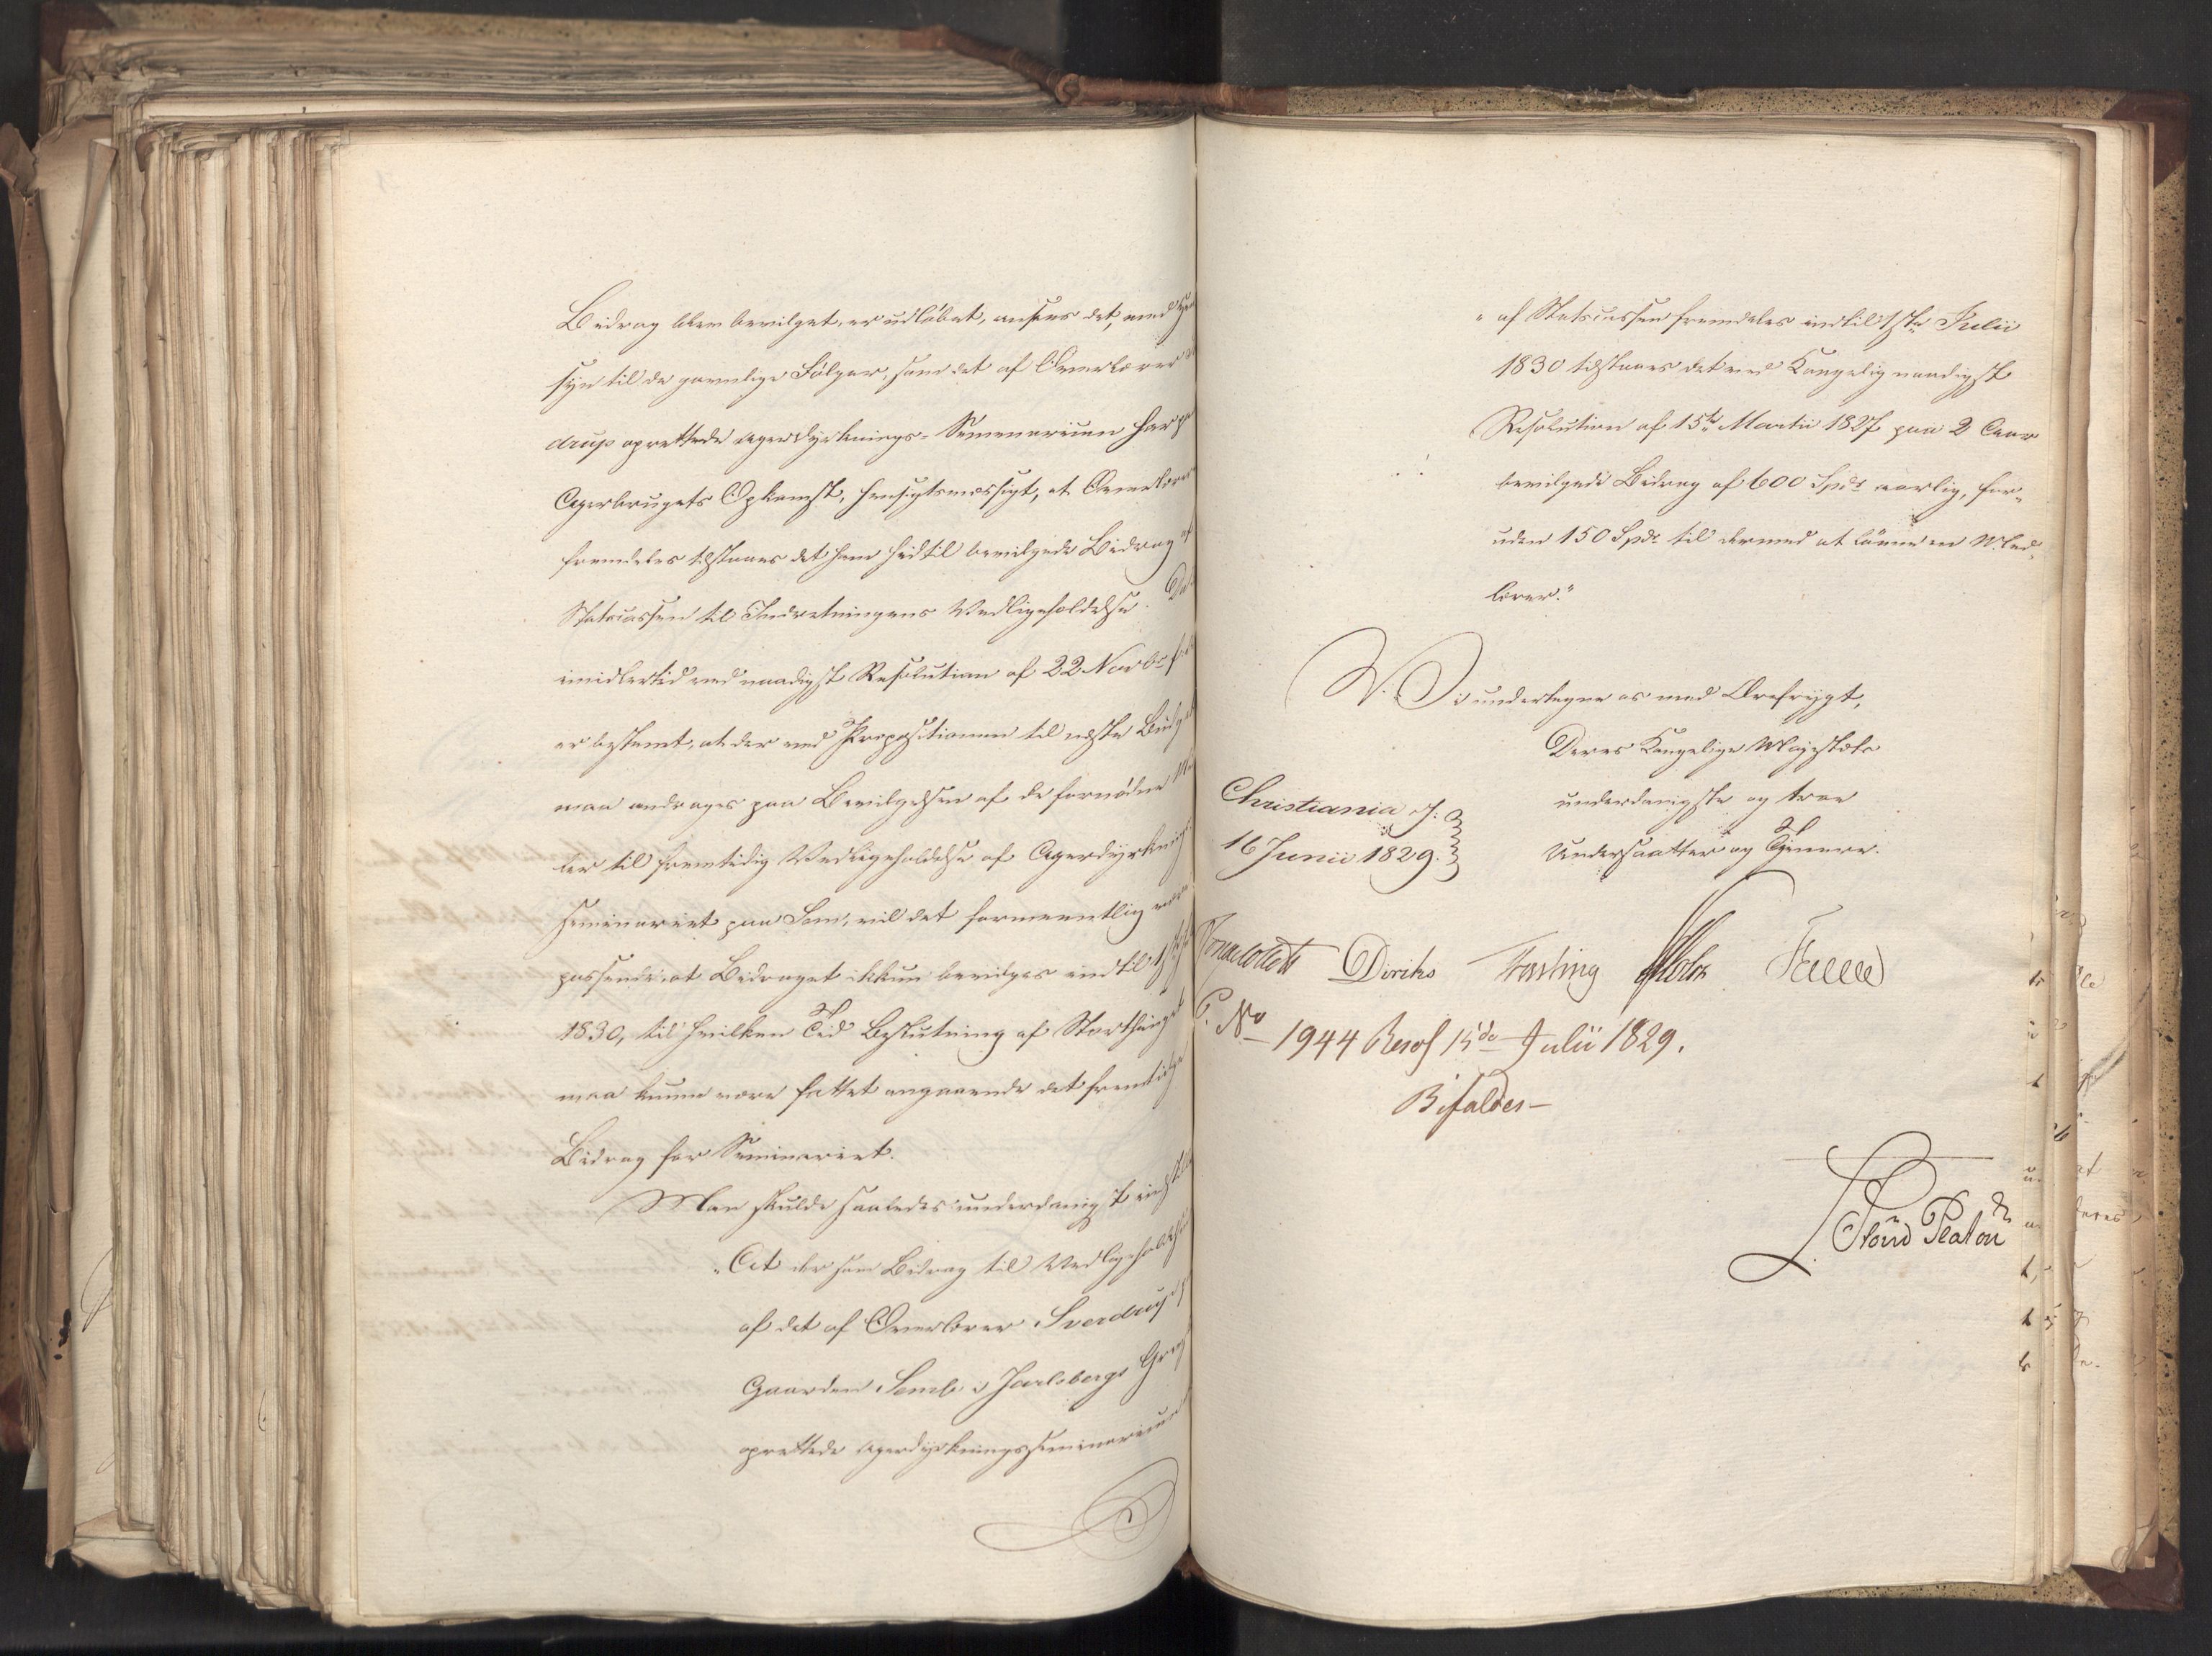 Bidrag blev bevilget, er udløbet, ansees det, med Hen
syn til de gavnlige Følger, som det af Overlærer
drup oprettede Agerdyrknings-Seminarium har
Agerbrugets Opkomst, hensigtsmæssigt, at Overlærer
fremdeles tilstaaes det ham hidtil bevilgede Bidrag af
Statscassen til Indretningens Vedligeholdelse. Da
imidlertid ved naadigst Resolution af 22 Novbr
er bestemt, at der ved Propositionen til næste Budget
maa andrages paa Bevilgelsen af de fornødne
ler til fremtidig Vedligeholdelse af Agerdyrknings
seminariet paa Sem, vil det formeentlig være
passende, at Bidraget ikkun bevilges indtil 1ste
1830, til hvilken Tid Beslutning af Storthinget
maa kunne være fattet angaaende det fremtidige
Bidrag for Seminariet.
Man skulde saaledes underdanigst indstille
"At der som Bidrag til Vedligeholdelsen
af det af Overlærer Sverdrup
Gaarden Semb i Jarlsbergs Grev
oprettede Agerdyrkningsseminarium
" af Statscassen fremdeles indtil 1ste Julii
1830 tilstaaes det ved Kongelig naadigst
Resolution af 15de Martii 1827 paa 2 Aar
bevilgede Bidrag af 600 Spdr aarlig, for-
uden 150 Spdr til dermed at lønne en Med-
lærer."
Vi undertegne os med Ærefrygt,
Deres Kongelige Majestæts
underdanigste og troe
Undersaatter og Tjenere.
Christiania d:
16 Junii 1829.
Jonas Collett Diriks Fasting Holst
P. No 1944 Resol 15de Julii 1829.
Bifaldes-